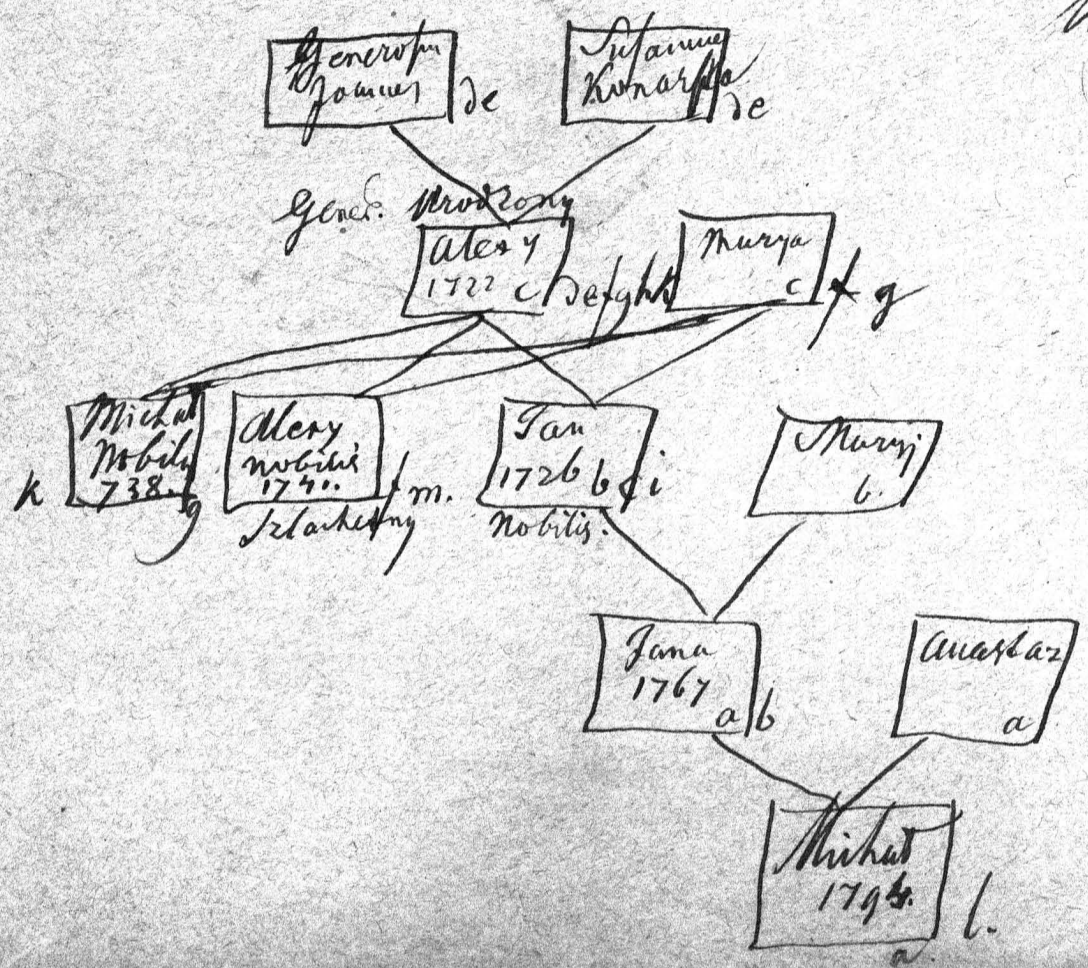 Generosus
Joannes
de
Konarska
de
Gener. Urodzony
Alexy
1722 c
defghk
Marya
c f g
Michał
Nobilis
738.
k
g
Alexy
nobilis
1741.
f m.
Szlachetny
Jan
1726 b c i
Nobilis.
Maryj
b.
Jana
1767
a b
Anastaz
a
Michał
1794.
l.
a.